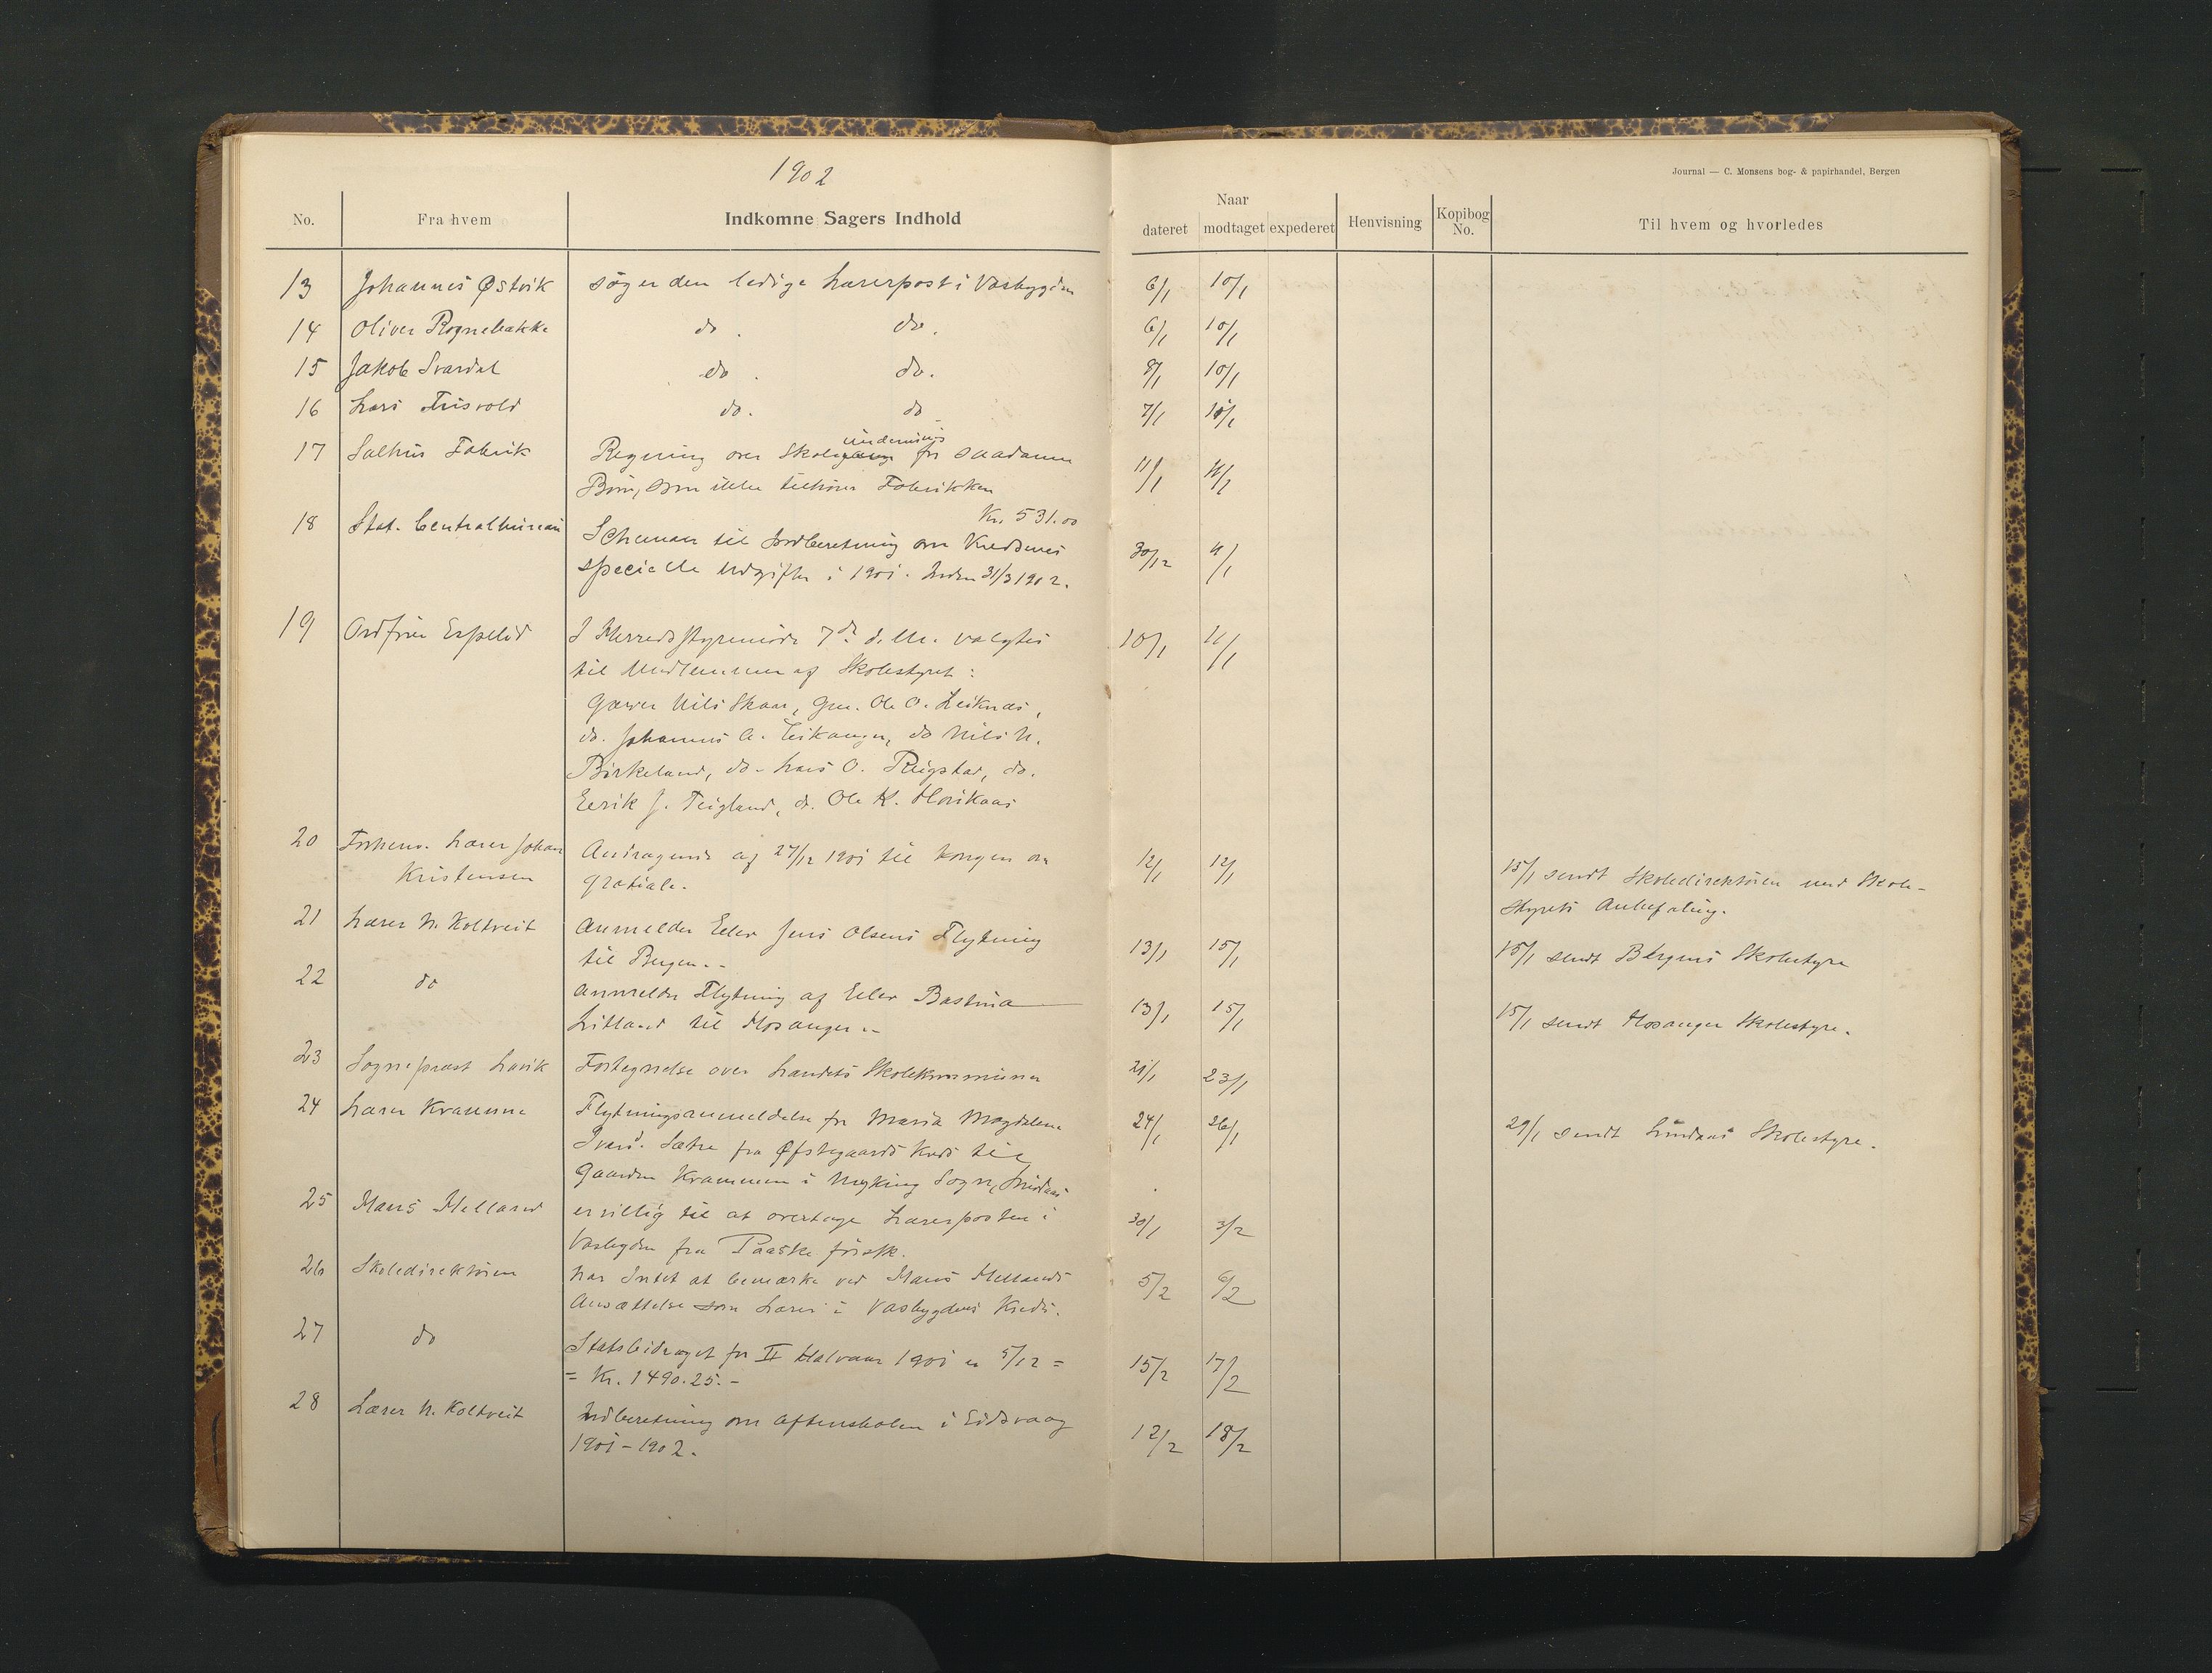 1902
Journal — C. Monsens bog- & papirhandel, Bergen
No. Fra hvem Indkomne Sagers Indhold Naar dateret modtaget expederet Henvisning Kopibog No. Til hvem og hvorledes
13 Johannes Østvik søger den ledige Lærerpost i Vasbygden 6/1 10/1
14 Oliver Rognebakke do. do. 6/1 10/1
15 Jakob Svardal do. do. 8/1 10/1
16 Lars do. do 7/1 10/1
17 Salhus Fabrik Regning over Skole undervisn for saadanne 11/1
Børn, som ikke tilhører Fabrikken
Kr. 531.00
18 Stat. Centralbureau Schemaer til Indberetning om Kredsenes 30/12 4/1
specielle Udgifter i 1901. Inden 31/3 1902.
19 Ordfører Espelid I Herredsstyremøde 7de d. M. valgtes 10/1 11/1
til Medlemmer af Skolestyret:
Garver Nils Skaar, Gm. Ole O. Leiknæs,
do. Johannes A. Eikanger, do Nils N.
Birkeland, do. Lars O. Rigstad, do.
Eerik J. Teigland, do. Ole K. Horikaas
20 Forhenv. Lærer Johan Andragende af 27/12 1901 til Kongen om 12/1 12/1 15/1 sendt Skoledirektøren med Skole-
Kristensen gratiale. styrets Anbefaling.
21 Lærer N. Koltveit Anmelder Elev Jens Olsens Flytning 13/1 15/1 15/1 sendt Bergens Skolestyre
til Bergen.-
22 do anmelder Flytning af Elev Bastina 13/1 15/1 15/1 sendt Hosanger Skolestyre.
Litland til Hosanger.-
23 Sogneprest Lavik Fortegnelse over Landets Skolekommuner 21/1 23/1
24 Lærer Kramme Flytningsanmeldelse for Maria Magdalene 24/1 26/1 29/1 sendt Lindaas Skolestyre.
Iversd. Sætre fra Øfstegaards Kreds til
Gaarden Krammen i Myking Sogn, Lindaas
25 Hans Helland er villig til at overtage Lærerposten i 30/1 3/2
Vasbygden fra Paaske førstk.
26 Skoledirektøren har Intet at bemærke ved Hans Hellands 5/2 6/2
Ansættelse som Lærer i Vasbygdens Kreds.
27 do Statsbidraget for II Halvaar 1901 er 5/12 = 15/2 17/2
= Kr. 1490.25.-
28 Lærer N. Koltveit Indberetning om Aftenskolen i Eidsvaag 12/2 18/2
1901-1902.